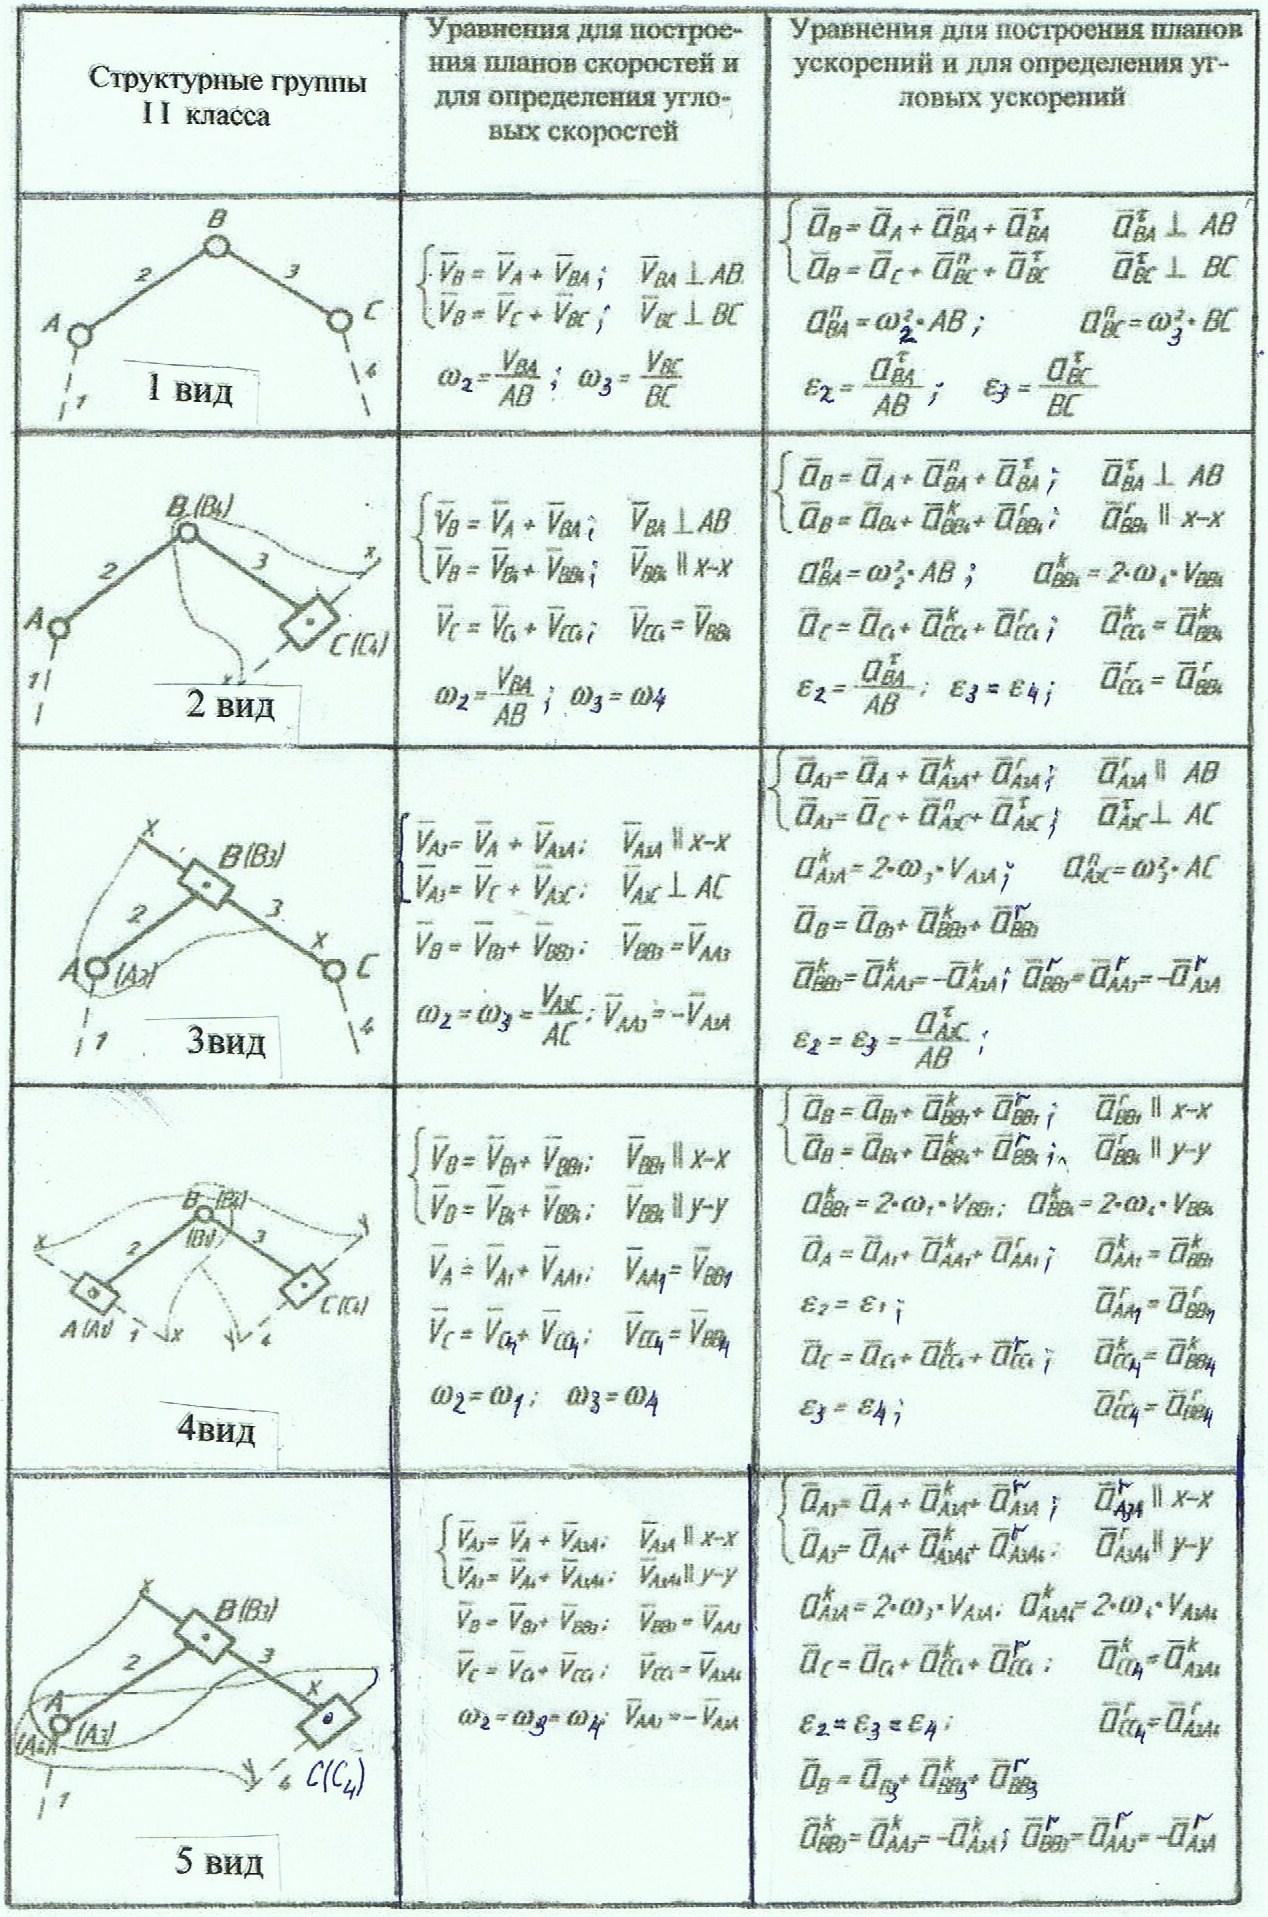 Структурные группы
II класса
Уравнения для построе-
ния планов скоростей и
для определения угло-
вых скоростей
Уравнения для построения планов
ускорений и для определения уг-
ловых ускорений
B
2
3
A
C
1
4
1 вид
V̄B = V̄A + V̄BA; V̄BA ⊥ AB
V̄B = V̄C + V̄BC; V̄BC ⊥ BC
ω2 = VBA/AB; ω3 = VBC/BC
āB = āA + āⁿBA + āᵗBA āᵗBA ⊥ AB
āB = āC + āⁿBC + āᵗBC āᵗBC ⊥ BC
aⁿBA = ω²2·AB; aⁿBC = ω²3·BC
ε2 = āᵗBA/AB; ε3 = āᵗBC/BC
B (B4)
2
3
x
A
C (C4)
1
x
2 вид
V̄B = V̄A + V̄BA; V̄BA ⊥ AB
V̄B = V̄B4 + V̄BB4; V̄BB4 ∥ x-x
V̄C = V̄C4 + V̄CC4; V̄CC4 = V̄BB4
ω2 = VBA/AB; ω3 = ω4
āB = āA + āⁿBA + āᵗBA; āᵗBA ⊥ AB
āB = āB4 + āᵏBB4 + āʳBB4; āʳBB4 ∥ x-x
aⁿBA = ω²2·AB; aᵏBB4 = 2·ω4·VBB4
āC = āC4 + āᵏCC4 + āʳCC4; āᵏCC4 = āᵏBB4
ε2 = āᵗBA/AB; ε3 = ε4; āʳCC4 = āʳBB4
x
B (B3)
2
3
x
A (A3)
C
1
4
3вид
V̄A3 = V̄A + V̄A3A; V̄A3A ∥ x-x
V̄A3 = V̄C + V̄A3C; V̄A3C ⊥ AC
V̄B = V̄B3 + V̄BB3; V̄BB3 = V̄AA3
ω2 = ω3 = VA3C/AC; V̄AA3 = -V̄A3A
āA3 = āA + āᵏA3A + āʳA3A; āʳA3A ∥ AB
āA3 = āC + āⁿA3C + āᵗA3C; āᵗA3C ⊥ AC
aᵏA3A = 2·ω3·VA3A; aⁿA3C = ω²3·AC
āB = āB3 + āᵏBB3 + āʳBB3
āᵏBB3 = āᵏAA3 = -āᵏA3A; āʳBB3 = āʳAA3 = -āʳA3A
ε2 = ε3 = āᵗA3C/AB;
B (B4)
(B1)
x
2
3
y
A (A1)
C (C4)
1
x
4
4вид
V̄B = V̄B1 + V̄BB1; V̄BB1 ∥ x-x
V̄B = V̄B4 + V̄BB4; V̄BB4 ∥ y-y
V̄A = V̄A1 + V̄AA1; V̄AA1 = V̄BB1
V̄C = V̄C4 + V̄CC4; V̄CC4 = V̄BB4
ω2 = ω1; ω3 = ω4
āB = āB1 + āᵏBB1 + āʳBB1; āʳBB1 ∥ x-x
āB = āB4 + āᵏBB4 + āʳBB4; āʳBB4 ∥ y-y
aᵏBB1 = 2·ω1·VBB1; aᵏBB4 = 2·ω4·VBB4
āA = āA1 + āᵏAA1 + āʳAA1; āᵏAA1 = āᵏBB1
ε2 = ε1; āʳAA1 = āʳBB1
āC = āC4 + āᵏCC4 + āʳCC4; āᵏCC4 = āᵏBB4
ε3 = ε4; āʳCC4 = āʳBB4
x
B (B3)
2
3
x
A
(A4) (A3)
1
4
C(C4)
5 вид
V̄A3 = V̄A + V̄A3A; V̄A3A ∥ x-x
V̄A3 = V̄A4 + V̄A3A4; V̄A3A4 ∥ y-y
V̄B = V̄B3 + V̄BB3; V̄BB3 = V̄AA3
V̄C = V̄C4 + V̄CC4; V̄CC4 = V̄A3A4
ω2 = ω3 = ω4; V̄AA3 = -V̄A3A
āA3 = āA + āᵏA3A + āʳA3A; āʳA3A ∥ x-x
āA3 = āA4 + āᵏA3A4 + āʳA3A4; āʳA3A4 ∥ y-y
aᵏA3A = 2·ω3·VA3A; aᵏA3A4 = 2·ω4·VA3A4
āC = āC4 + āᵏCC4 + āʳCC4; āᵏCC4 = āᵏA3A4
ε2 = ε3 = ε4; āʳCC4 = āʳA3A4
āB = āB3 + āᵏBB3 + āʳBB3
āᵏBB3 = āᵏAA3 = -āᵏA3A; āʳBB3 = āʳAA3 = -āʳA3A